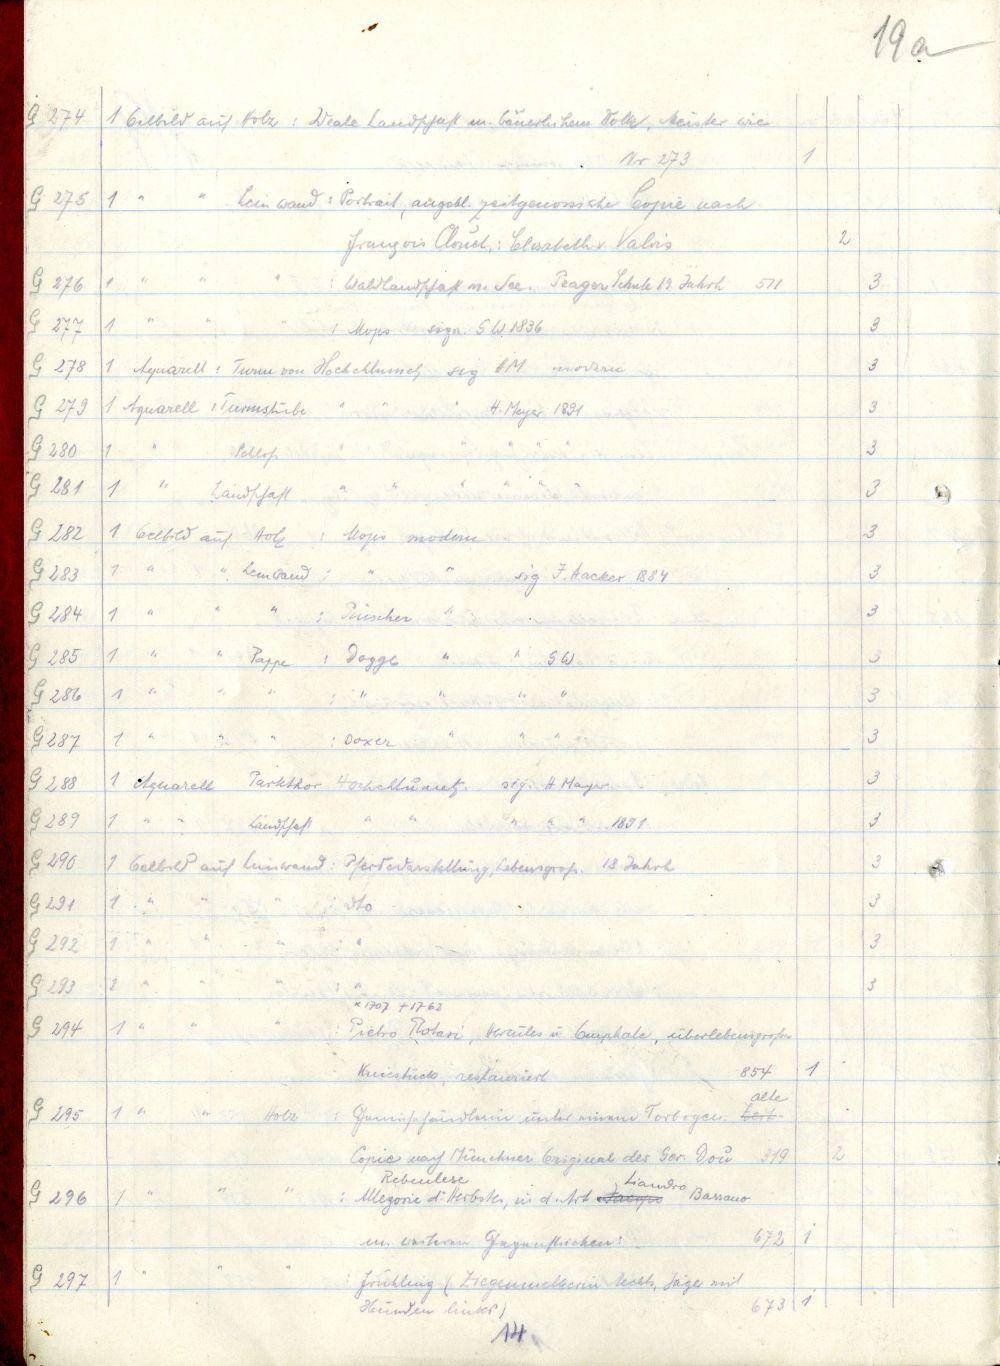 19a
G 274 1 Oelbild auf Holz : Ideale Landschaft m. bäuerlichem Volk, Meister wie
Nr 273 1
G 275 1 " " Leinwand : Portrait, angebl. zeitgenossische Copie nach
François Clouet, : Elisabeth v. Valois 2
G 276 1 " " " : Waldlandschaft m. See. Prager Schule 19 Jahrh 511 3
G 277 1 " " " : Mops sign. SW 1836 3
G 278 1 Aquarell : Turm von Hochchlumetz sig HM modern 3
G 279 1 Aquarell : Turmstube " " " H. Mayer 1891 3
G 280 1 " Schloß " " " " " 3
G 281 1 " Landschaft " " " " " " 3
G 282 1 Oelbild auf Holz : Mops modern 3
G 283 1 " " Leinwand : " " sig F. Hacker 1884 3
G 284 1 " " " : Pinscher " 3
G 285 1 " " Pappe : Dogge " " SW 3
G 286 1 " " " : " " " " 3
G 287 1 " " " : Boxer " " " 3
G 288 1 Aquarell Parkthor Hochchlumetz sig. H Mayer 3
G 289 1 " " Landschaft " " " " " 1891 3
G 290 1 Oelbild auf Leinwand : Pferdedarstellung, Lebensgroß. 18 Jahrh 3
G 291 1 " " " : dto 3
G 292 1 " " " : " 3
G 293 2 " " " : " 3
* 1707 + 1762
G 294 1 " " " : Pietro Rotari, Herkules u Omphale, überlebensgroßes
Kniestück, restauriert 854 1
alte
G 295 1 " " Holz : Gemüsehändlerin unter einem Torbogen. Zeit.
Copie nach Münchner Original des Ger. Dou 319 2
Rebenlese Liandro
G 296 1 " " " : Allegorie d. Herbstes, in d. Art Jacopo Bassano
m. weiteren Gegenstücken: 672 1
G 297 1 " " " : Frühling (Ziegenmelkerin rechts, Jäger mit
Hunden links) 673 1
14.